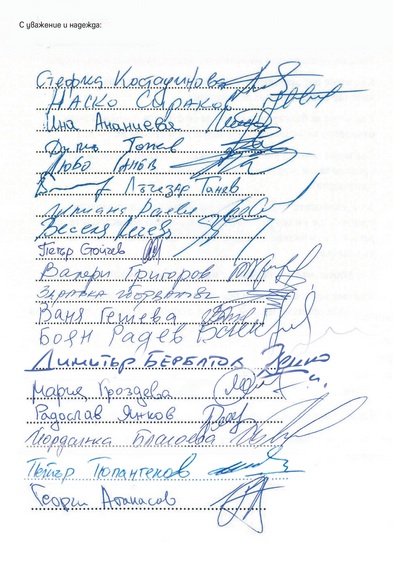 С уважение и надежда:
Стефка Костадинова
Наско Сираков
Ина Ананиева
Филип Топов
Любо Ганев
Лъчезар Танев
Лилиана Раева
Весела Лечева
Петър Стойчев
Валери Григоров
Здравка Георгиева
Ваня Гешева
Боян Радев
Димитър Бербатов
Мария Гроздева
Радослав Янков
Йорданка Благоева
Петър Тюпантенов
Георги Атанасов